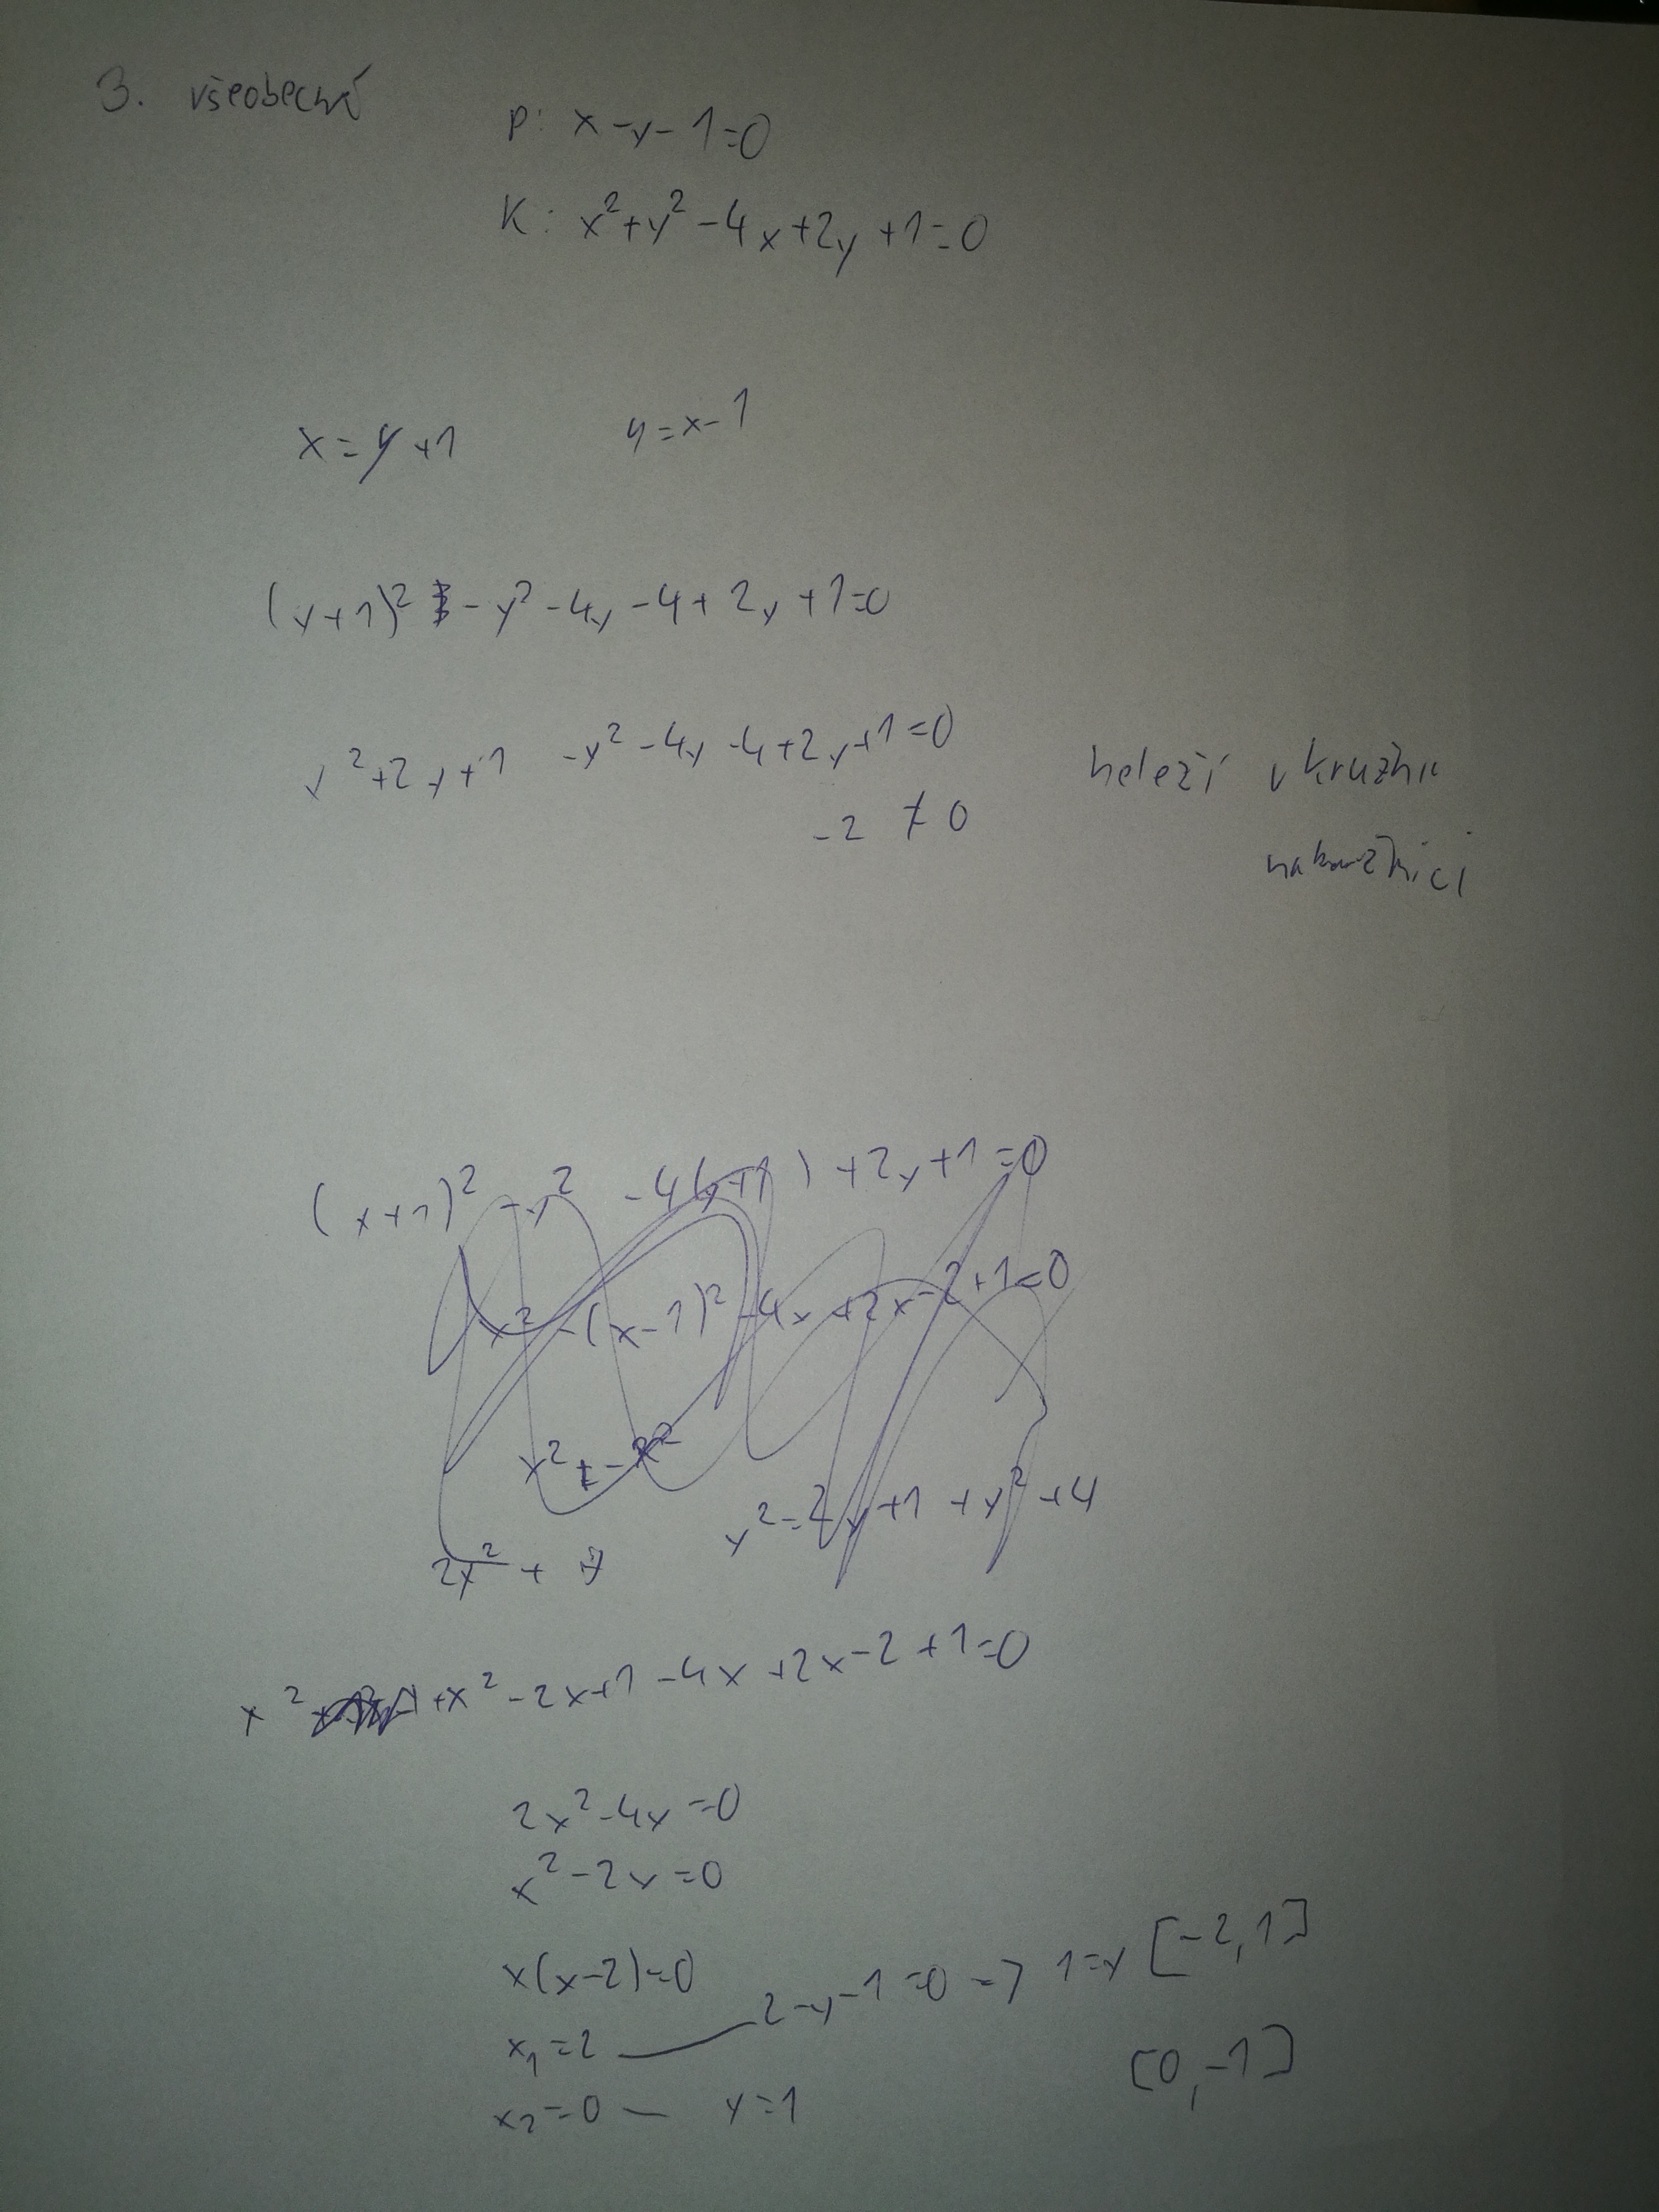 3. všeobecná
p: x-y-1=0
K: x²+y²-4x+2y+1=0
x=y+1 y=x-1
(y+1)² -y²-4y-4+2y+1=0
y²+2y+1 -y²-4y-4+2y+1=0
-2 ≠ 0
neleží v kružni
na kružnici
(x+1)² -y² -4(y+1) +2y+1=0
x² -(x-1)² -4x+2x-2+1=0
x²
y²=2y+1+y²+4
2x² +
x² +x²-2x+1-4x+2x-2+1=0
2x²-4x=0
x²-2x=0
x(x-2)=0
x₁=2 — 2-y-1=0 -> 1=y [-2,1]
x₂=0 — y=1 [0,-1]